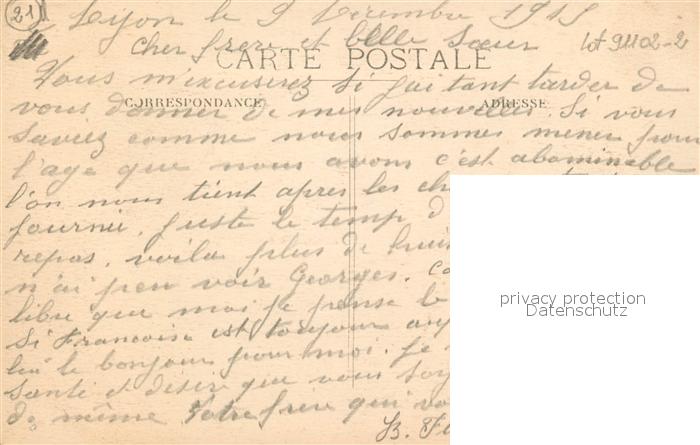 21
Lyon le 9 Décembre 1915
Lot 91102-2
cher frere et belle Sœur
CARTE POSTALE
Vous m'excuserez Si j'ai tant tarder de
CORRESPONDANCE
ADRESSE
vous donner de mes nouvelles. Si vous
Saviez comme nous sommes mener pour
l'age que nous avons c'est abominable
l'on nous tient apres les
fournie. Juste le temps d
repas. voila plus de huit
n'ai peu voir Georges.
libre que moi je pense le
Si Francoise est toujour
lui le bonjour pour moi. je
santé et desire que vous soy
de même Votre frere qui vo
B.
privacy protection
Datenschutz